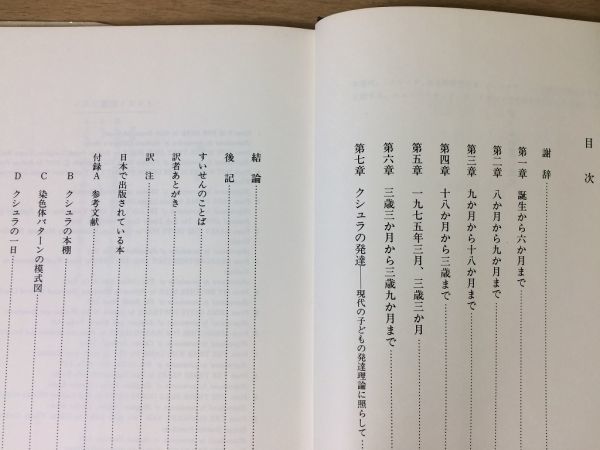 目次
謝辞
第一章 誕生から六か月まで
第二章 八か月から九か月まで
第三章 九か月から十八か月まで
第四章 十八か月から三歳まで
第五章 一九七五年三月、三歳三か月
第六章 三歳三か月から三歳九か月まで
第七章 クシュラの発達──現代の子どもの発達理論に照らして
結論
後記
すいせんのことば
訳者あとがき
訳注
日本で出版されている本
付録A 参考文献
B クシュラの本棚
C 染色体パターンの模式図
D クシュラの一日